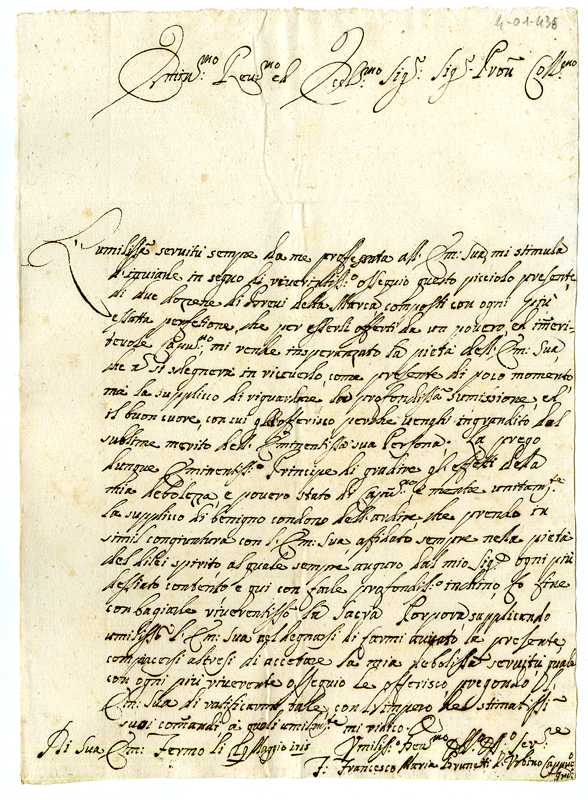 4-01-438
Emin.mo Rev.mo ed Ecc.mo Sig.r Sig.r Pron Coll.mo
L'umiliss.a servitù sempre da me professata all'Em: Sua, mi stimula
d'inviarle in segno di riverentiss.o ossequio questo picciolo presente,
di due dozzene di della Marca, composti con ogni più
esatta perfetione, che per esserli offerti da un povero, ed imeri-
tevole Capu.no mi rende insperanzato la pietà dell'Em: Sua,
che ñ si sdegnerà in riceverlo, come presente di poco momento
ma la supplico di riguardare la profondiss.a sumissione, ed
il buon cuore, con cui gli offerisco perche venghi ingrandito dal
sublime merito dell'Eminentiss.a sua Persona. La prego
dunque Eminentiss.o Principe di gradire gli effetti della
mia debolezza, e povero stato di Capu.no e mentre unitam.te
la supplico di benigno condono dell'ardire, che prendo in
simil congiuntura con l'Em: Sua, affidato sempre nella pietà
del di spirito, al quale sempre auguro dal mio Sig.re ogni più
dessiato contento, e qui con farle profondiss.o inchino, fo fine
con bagiarle riverentiss.o la Sacra Porpora supplicando
umiliss.o l'Em: Sua a degnarsi di farmi la presente
compiacersi altresi di accettare la mia deboliss.a servitù quale
con ogni più riverente ossequio le offerisco pregando l'
Em: Sua di ratificarmi tale con l'impero de stimatissi
suoi comandi, a quali umilm.te mi
Di Sua Em: Fermo li 19 Maggio 1715 Umiliss.o Dev.mo Ser.re
F: Francesco Maria Brunetti d'Urbino Capuc.o